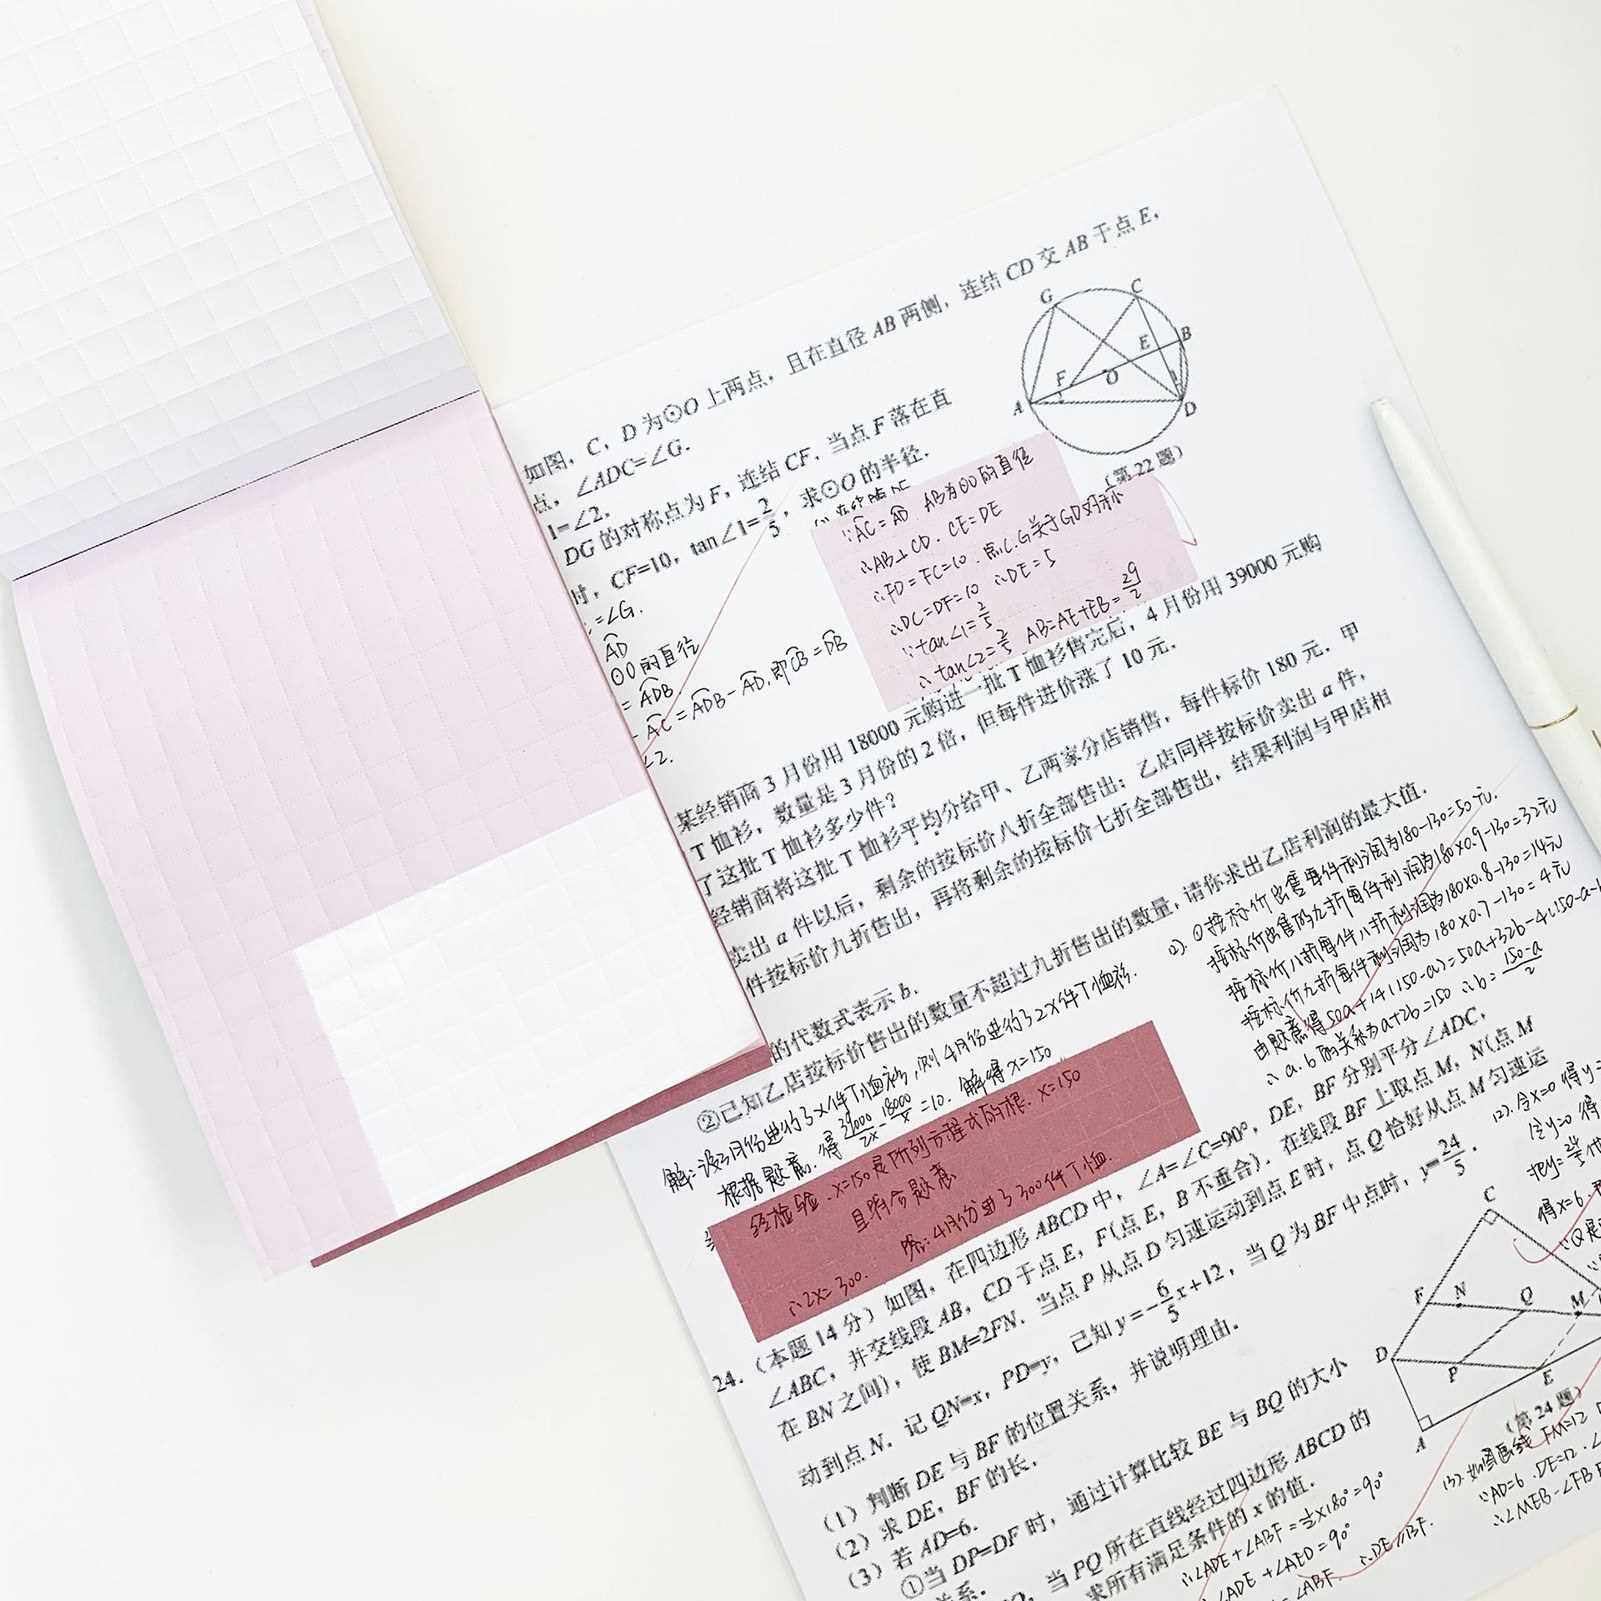 如图,C,D为⊙O上两点,且在直径AB两侧,连结CD交AB于点E,
点,∠ADC=∠G.
1=∠2.
DG的对称点为F,连结CF.当点F落在直
时,CF=10,tan∠1=2/5,求⊙O的半径.
G
C
B
E
F
O
A
D
1
(第22题)
=∠G.
AD
⊙O的直径
=ADB
-AC=ADB-AD,即CB=DB
∠2.
∵AC=AD AB为⊙O的直径
∴AB⊥CD.CE=DE
∴FD=FC=10.点C.G关于GD对称
∴DC=DF=10 ∴DE=5
∵tan∠1=2/5
∴tan∠2=2/5 AB=AE+EB=29/2
某经销商3月份用18000元购进一批T恤衫售完后,4月份用39000元购
T恤衫,数量是3月份的2倍,但每件进价涨了10元.
了这批T恤衫多少件?
经销商将这批T恤衫平均分给甲、乙两家分店销售,每件标价180元.甲
卖出a件以后,剩余的按标价八折全部售出;乙店同样按标价卖出a件,
件按标价九折售出,再将剩余的按标价七折全部售出,结果利润与甲店相
的代数式表示b.
②已知乙店按标价售出的数量不超过九折售出的数量,请你求出乙店利润的最大值.
解:设3月份进的了x件T恤衫,则4月份进的了2x件T恤衫.
根据题意.得39000/2x-18000/x=10.解得x=150
经检验.x=150是所列方程式的根.x=150
且符合题意
∴2x=300. 答:4月份进了300件T恤.
2).①按标价出售每件利润为180-130=50元.
按标价出售的九折每件利润为180×0.9-130=32元
按标价八折每件八折利润为180×0.8-130=14元
按标价九折每件利润为180×0.7-130=4元
由题意得50a+14(150-a)=50a+32b-4(150-a-
∴a.b的关系为a+2b=150 ∴b=150-a/2
24.(本题14分)如图,在四边形ABCD中,∠A=∠C=90°,DE,BF分别平分∠ADC,
∠ABC,并交线段AB,CD于点E,F(点E,B不重合).在线段BF上取点M,N(点M
在BN之间),使BM=2FN.当点P从点D匀速运动到点E时,点Q恰好从点M匀速运
动到点N.记QN=x,PD=y,已知y=-6/5x+12,当Q为BF中点时,y=24/5.
(1)判断DE与BF的位置关系,并说明理由.
(2)求DE,BF的长.
(3)若AD=6.
①当DP=DF时,通过计算比较BE与BQ的大小
关系.
当PQ所在直线经过四边形ABCD的
求所有满足条件的x的值.
C
F
N
Q
M
D
P
E
A
(第24题)
(2).令x=0得y=
令y=0得
得x=6.
∴∠ADE+∠ABF=½×180°=90°
∠ADE+∠AED=90°
∠ABF. ∴DE∥BF.
(3).如图画线 FM=12
∵AD=6.DE=12.